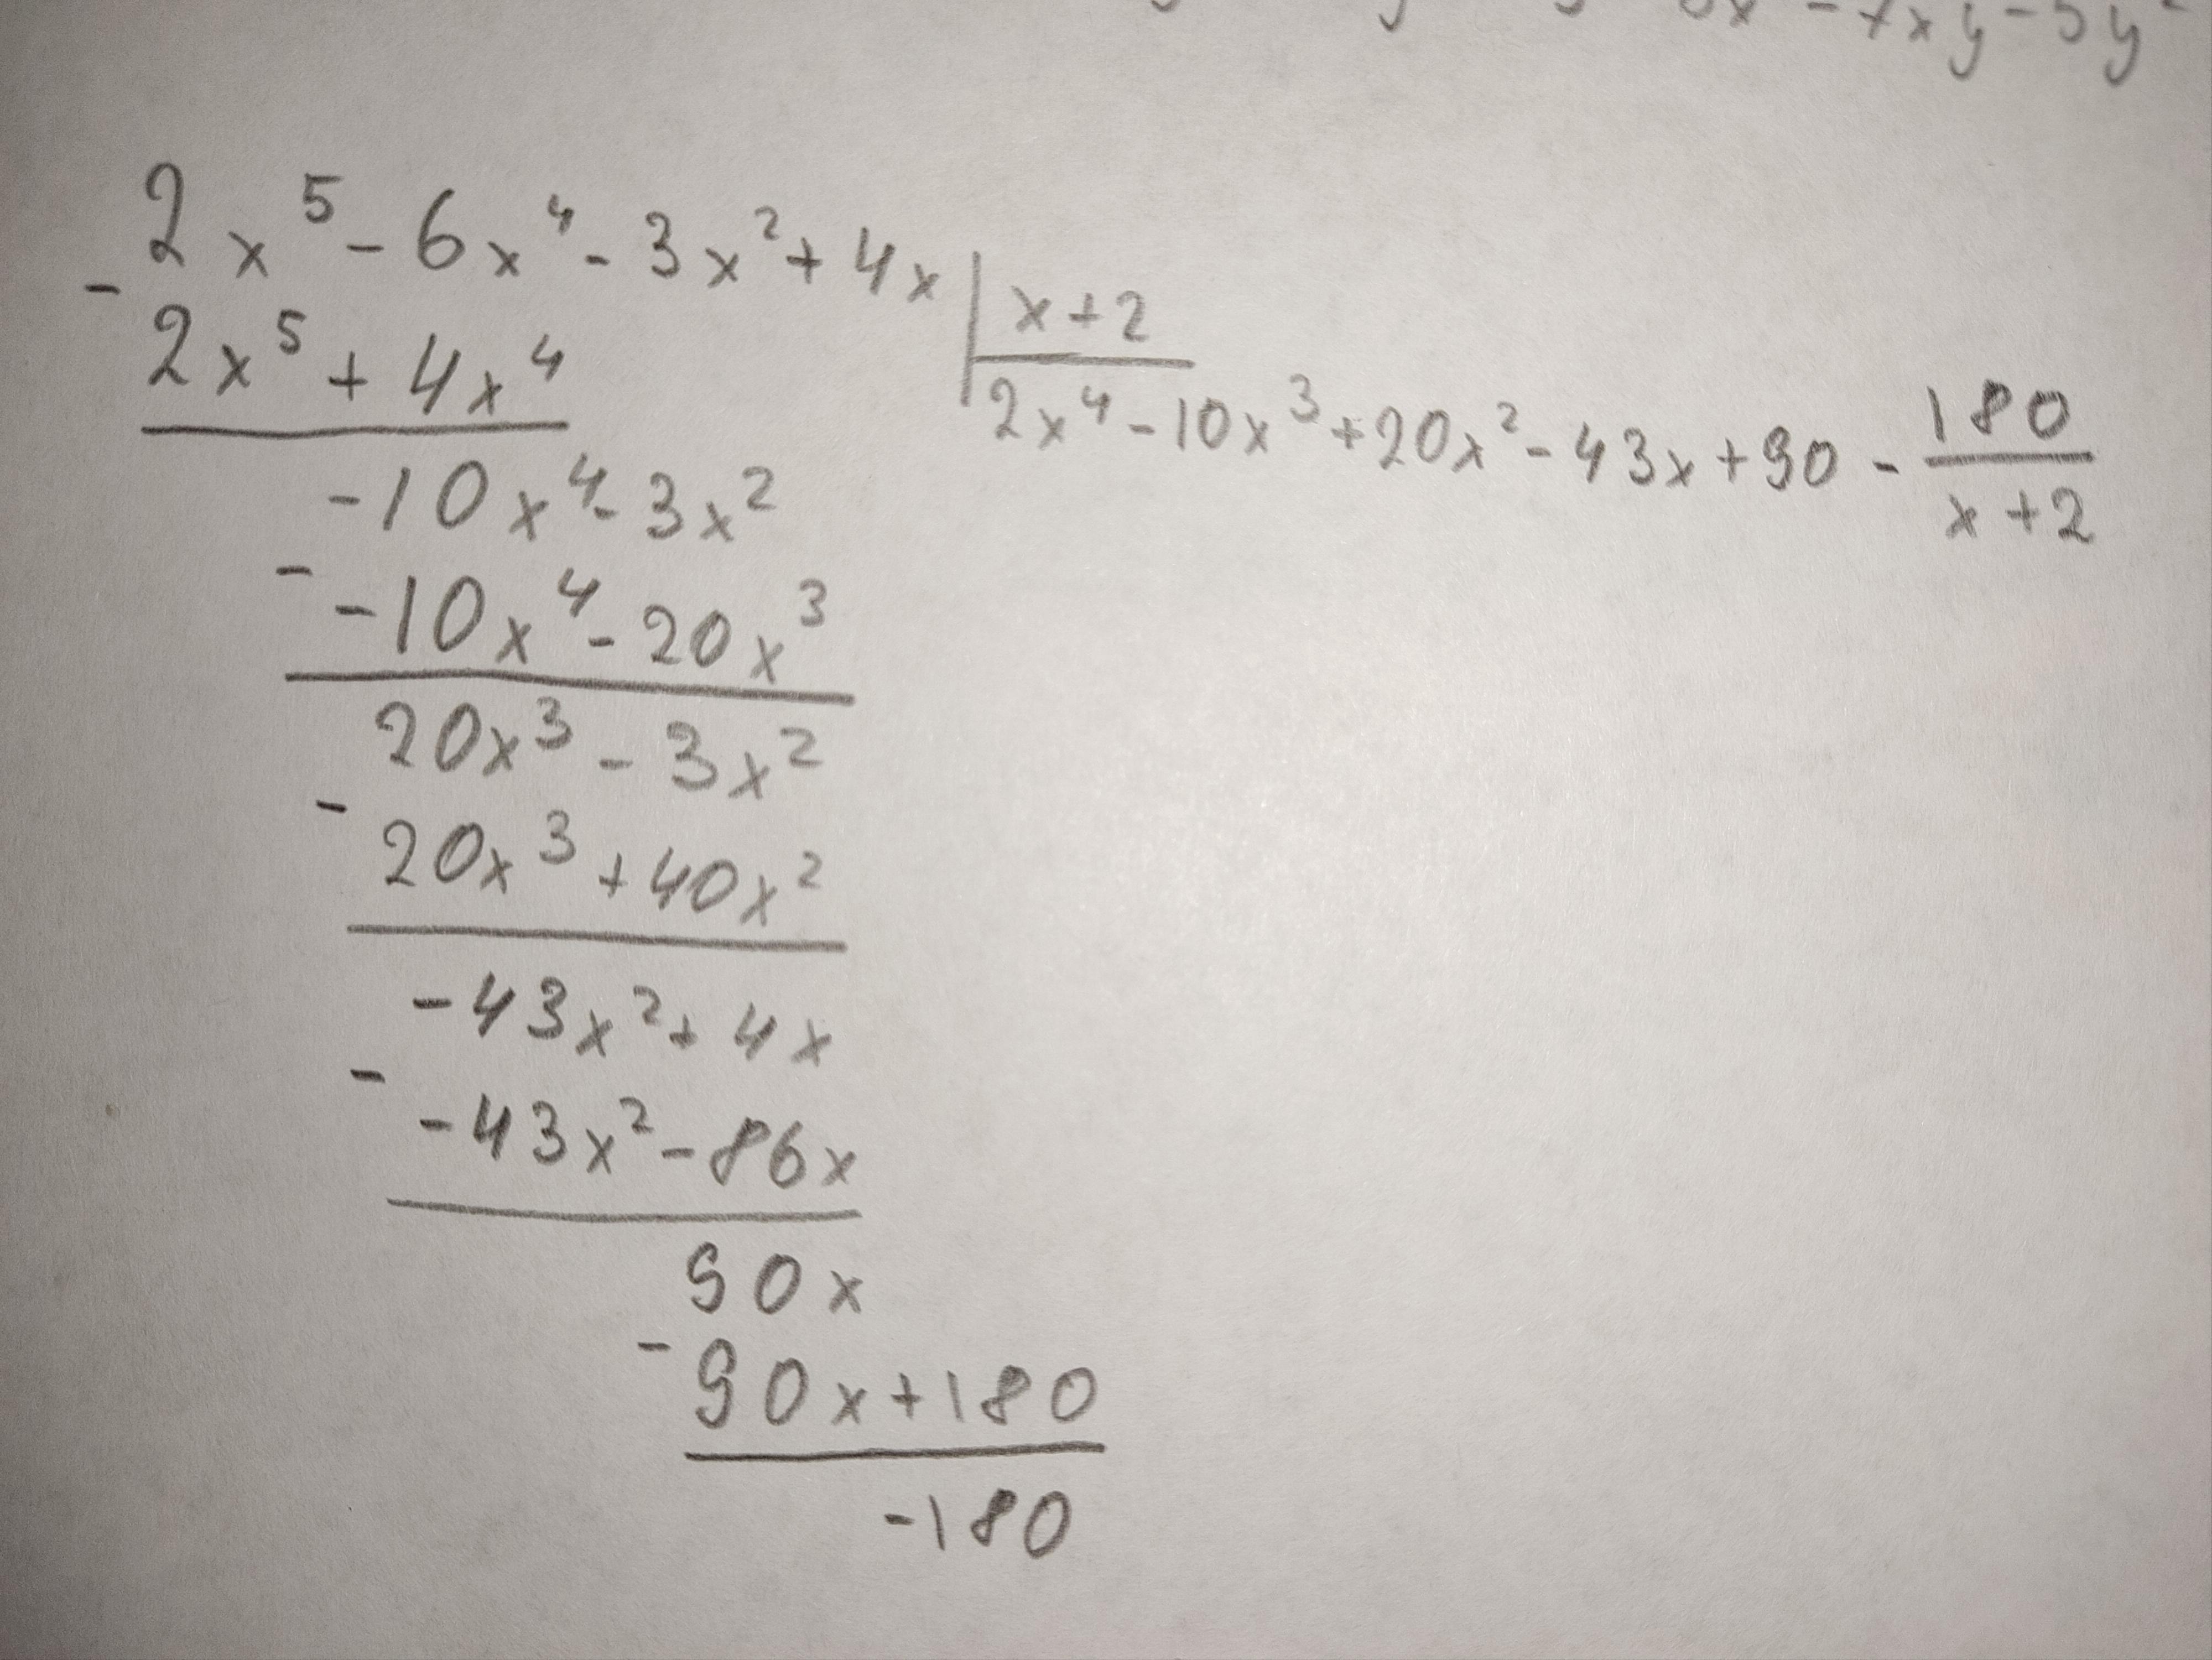 - 7xy - 5y²
2x⁵ - 6x⁴ - 3x² + 4x | x + 2
- 2x⁵ + 4x⁴
2x⁴ - 10x³ + 20x² - 43x + 90 - 180/(x + 2)
-10x⁴ - 3x²
- -10x⁴ - 20x³
20x³ - 3x²
- 20x³ + 40x²
-43x² + 4x
- -43x² - 86x
90x
- 90x + 180
-180